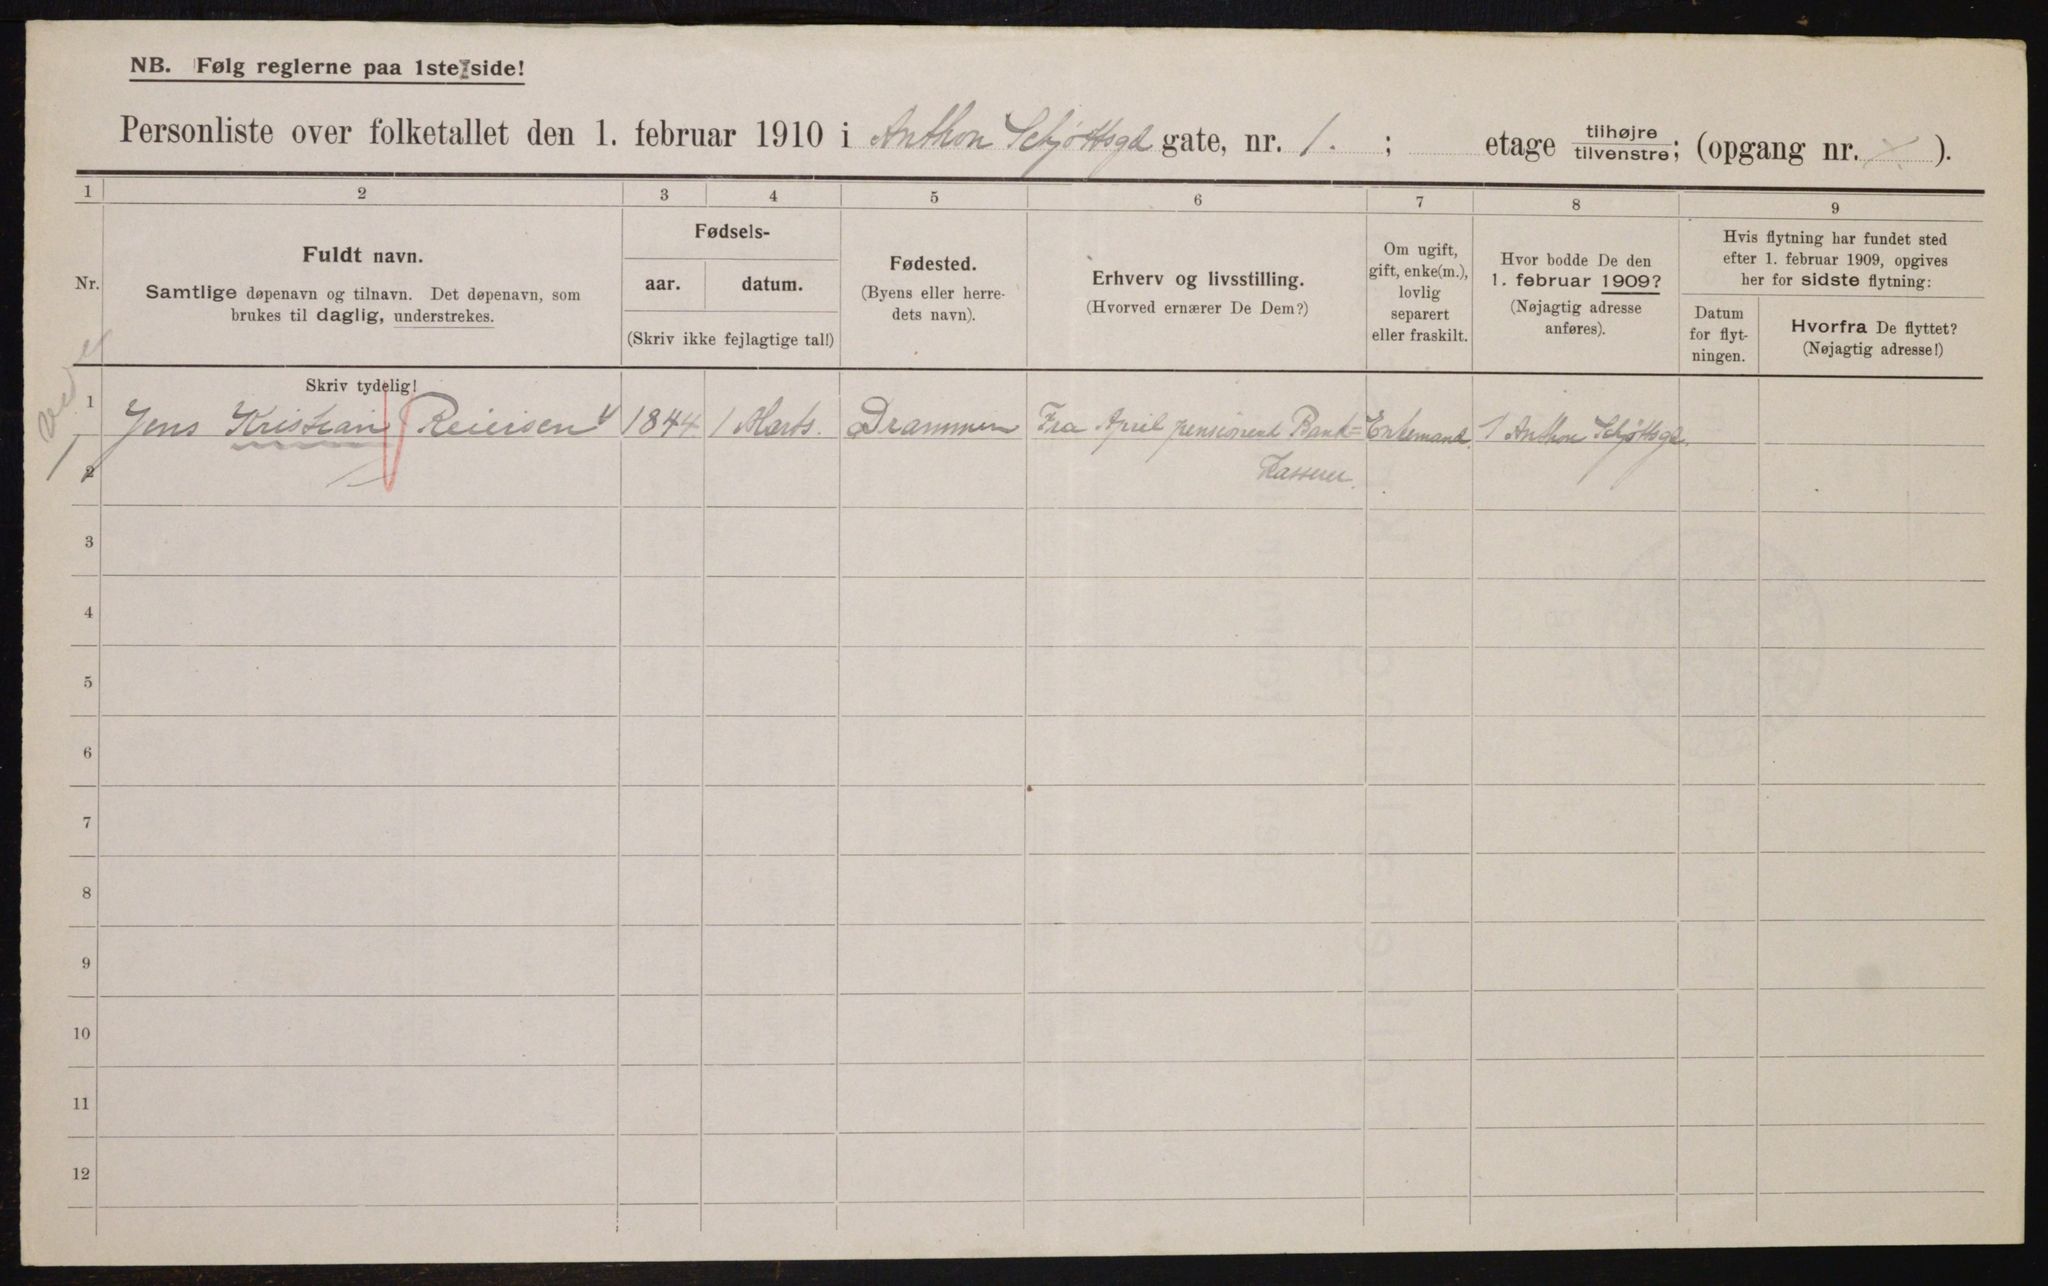 NB. Følg reglerne paa 1ste side!
Personliste over folketallet den 1. februar 1910 i Anthon Schjøttsgd gate, nr. 1. ; etage tilhøjre/tilvenstre; (opgang nr. × ).
1 2 3 4 5 6 7 8 9
Nr.
Fuldt navn.
Samtlige døpenavn og tilnavn. Det døpenavn, som
brukes til daglig, understrekes.
Skriv tydelig!
Fødsels-
aar. datum.
(Skriv ikke fejlagtige tal!)
Fødested.
(Byens eller herre-
dets navn).
Erhverv og livsstilling.
(Hvorved ernærer De Dem?)
Om ugift,
gift, enke(m.),
lovlig
separert
eller fraskilt.
Hvor bodde De den
1. februar 1909?
(Nøjagtig adresse
anføres).
Hvis flytning har fundet sted
efter 1. februar 1909, opgives
her for sidste flytning:
Datum
for flyt-
ningen.
Hvorfra De flyttet?
(Nøjagtig adresse!)
1 Jens Kristian Reiersen 1844 1 Marts. Drammen Fra April pensionert Bank= Enkemand. 1 Anthon Schjøttsgd.
Kasserer.
2
3
4
5
6
7
8
9
10
11
12